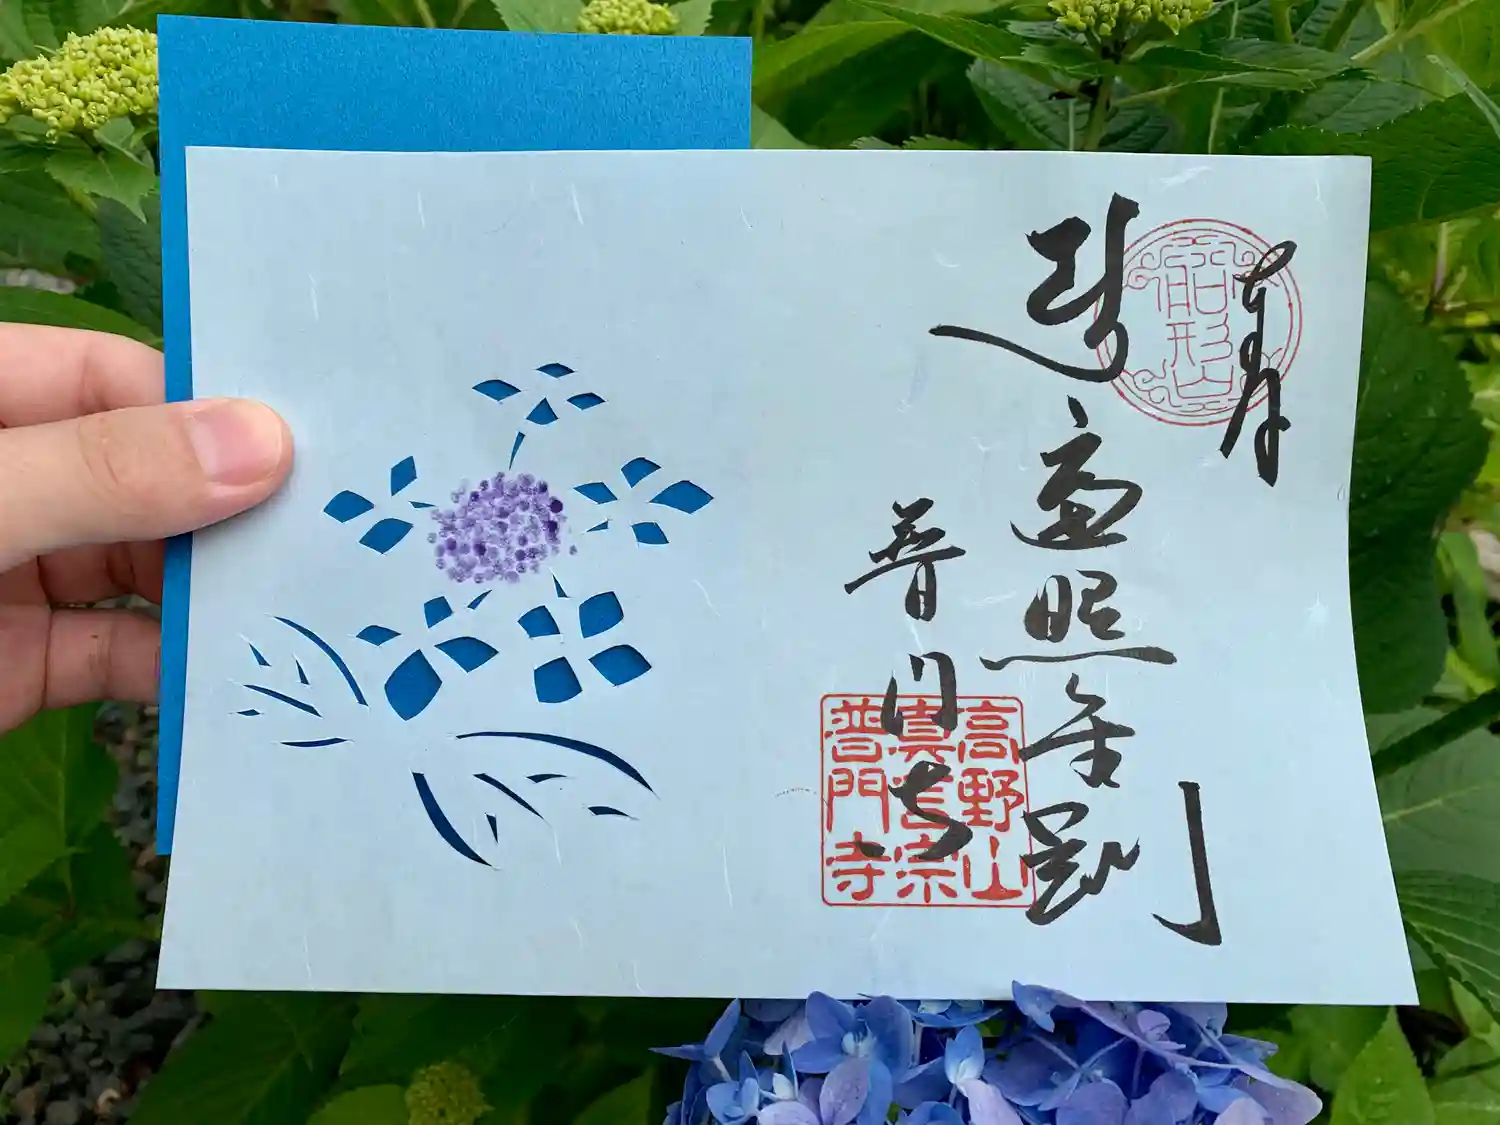 奉拝
遍照金剛
普門寺
高野山
真言宗
普門寺